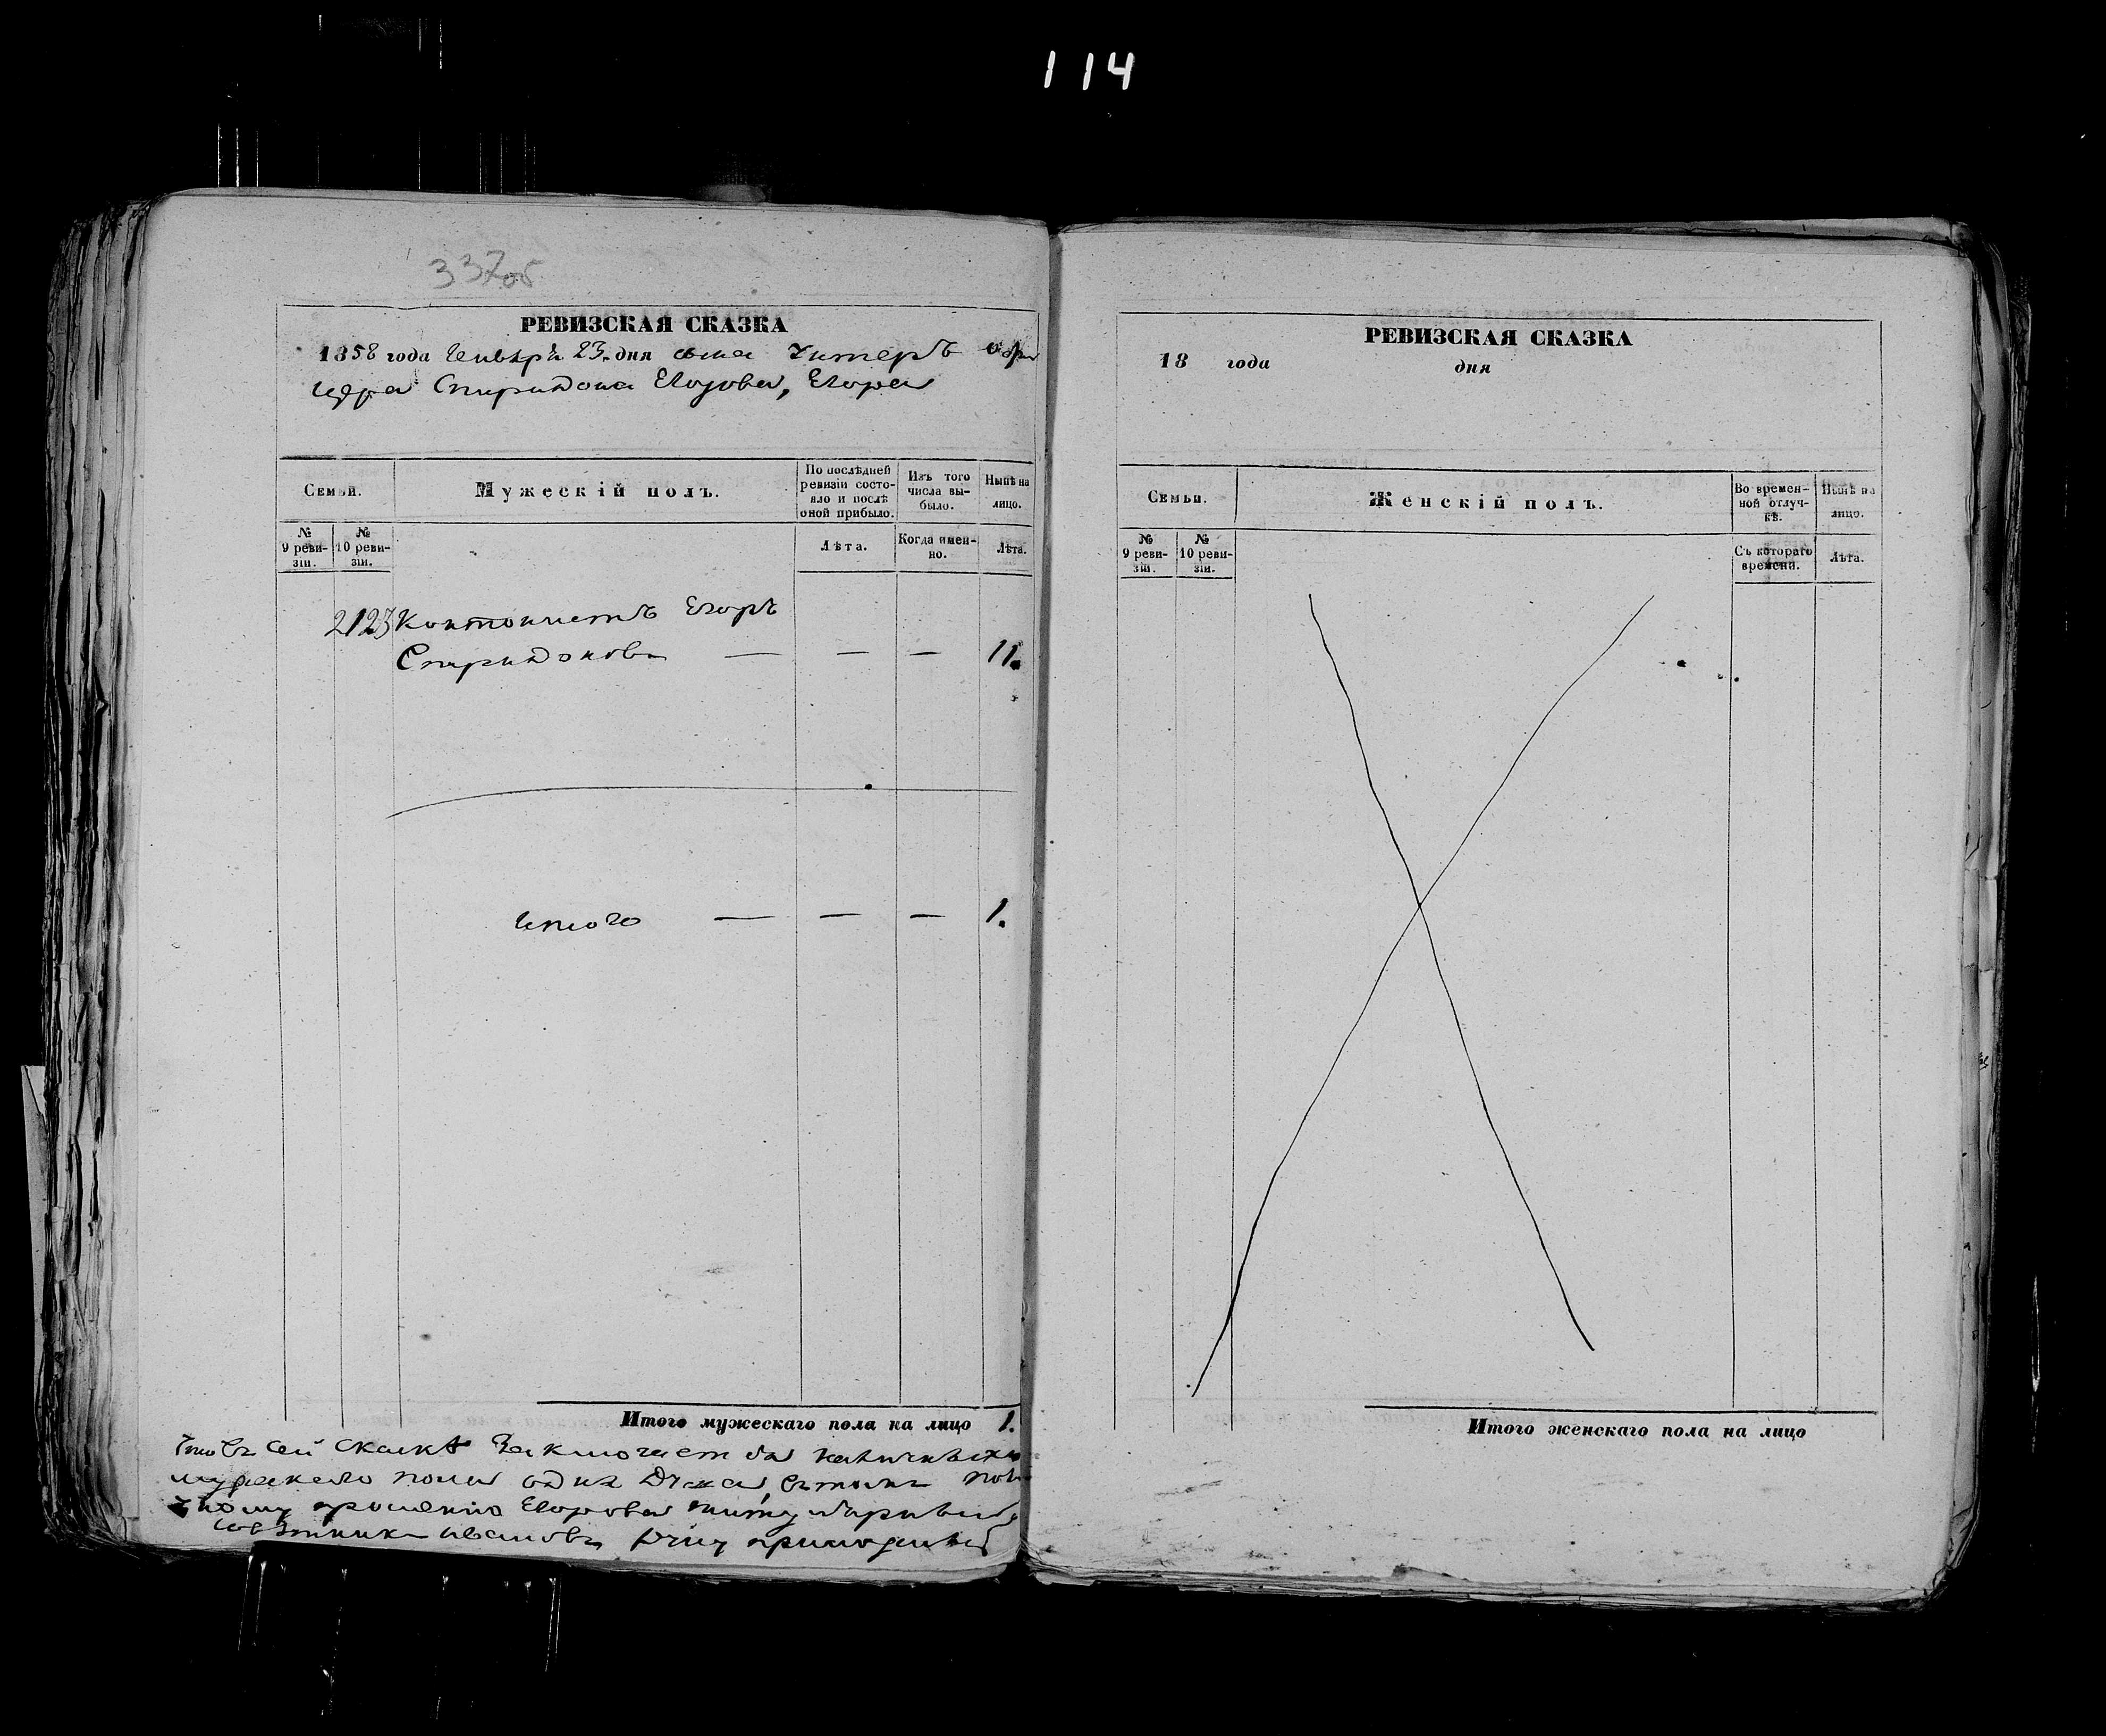 114
337об
РЕВИЗСКАЯ СКАЗКА
1858 года Генваря 23. дня сына Унтеръ Офи
цера Спиридона Егорова, Егора
Семьи.
Мужескій полъ.
По послѣдней ревизіи состояло и послѣ оной прибыло.
Изъ того числа выбыло.
Нынѣ на лицо.
№ 9 ревизіи.
№ 10 ревизіи.
Лѣта.
Когда именно.
Лѣта.
2123 Кантонистъ Егоръ
Спиридоновъ — — — 11.
Итого — — — 1.
Итого мужескаго пола на лицо 1.
Что въ сей скаскѣ Заключается наличныхъ
мужскаго пола одна Душа, въ томъ
прошенію Егорова
Совѣтникъ Ивановъ руку приложилъ
РЕВИЗСКАЯ СКАЗКА
18 года дня
Семьи.
Женскій полъ.
Во временной отлучкѣ.
Нынѣ на лицо.
№ 9 ревизіи.
№ 10 ревизіи.
Съ котораго времени.
Лѣта.
Итого женскаго пола на лицо